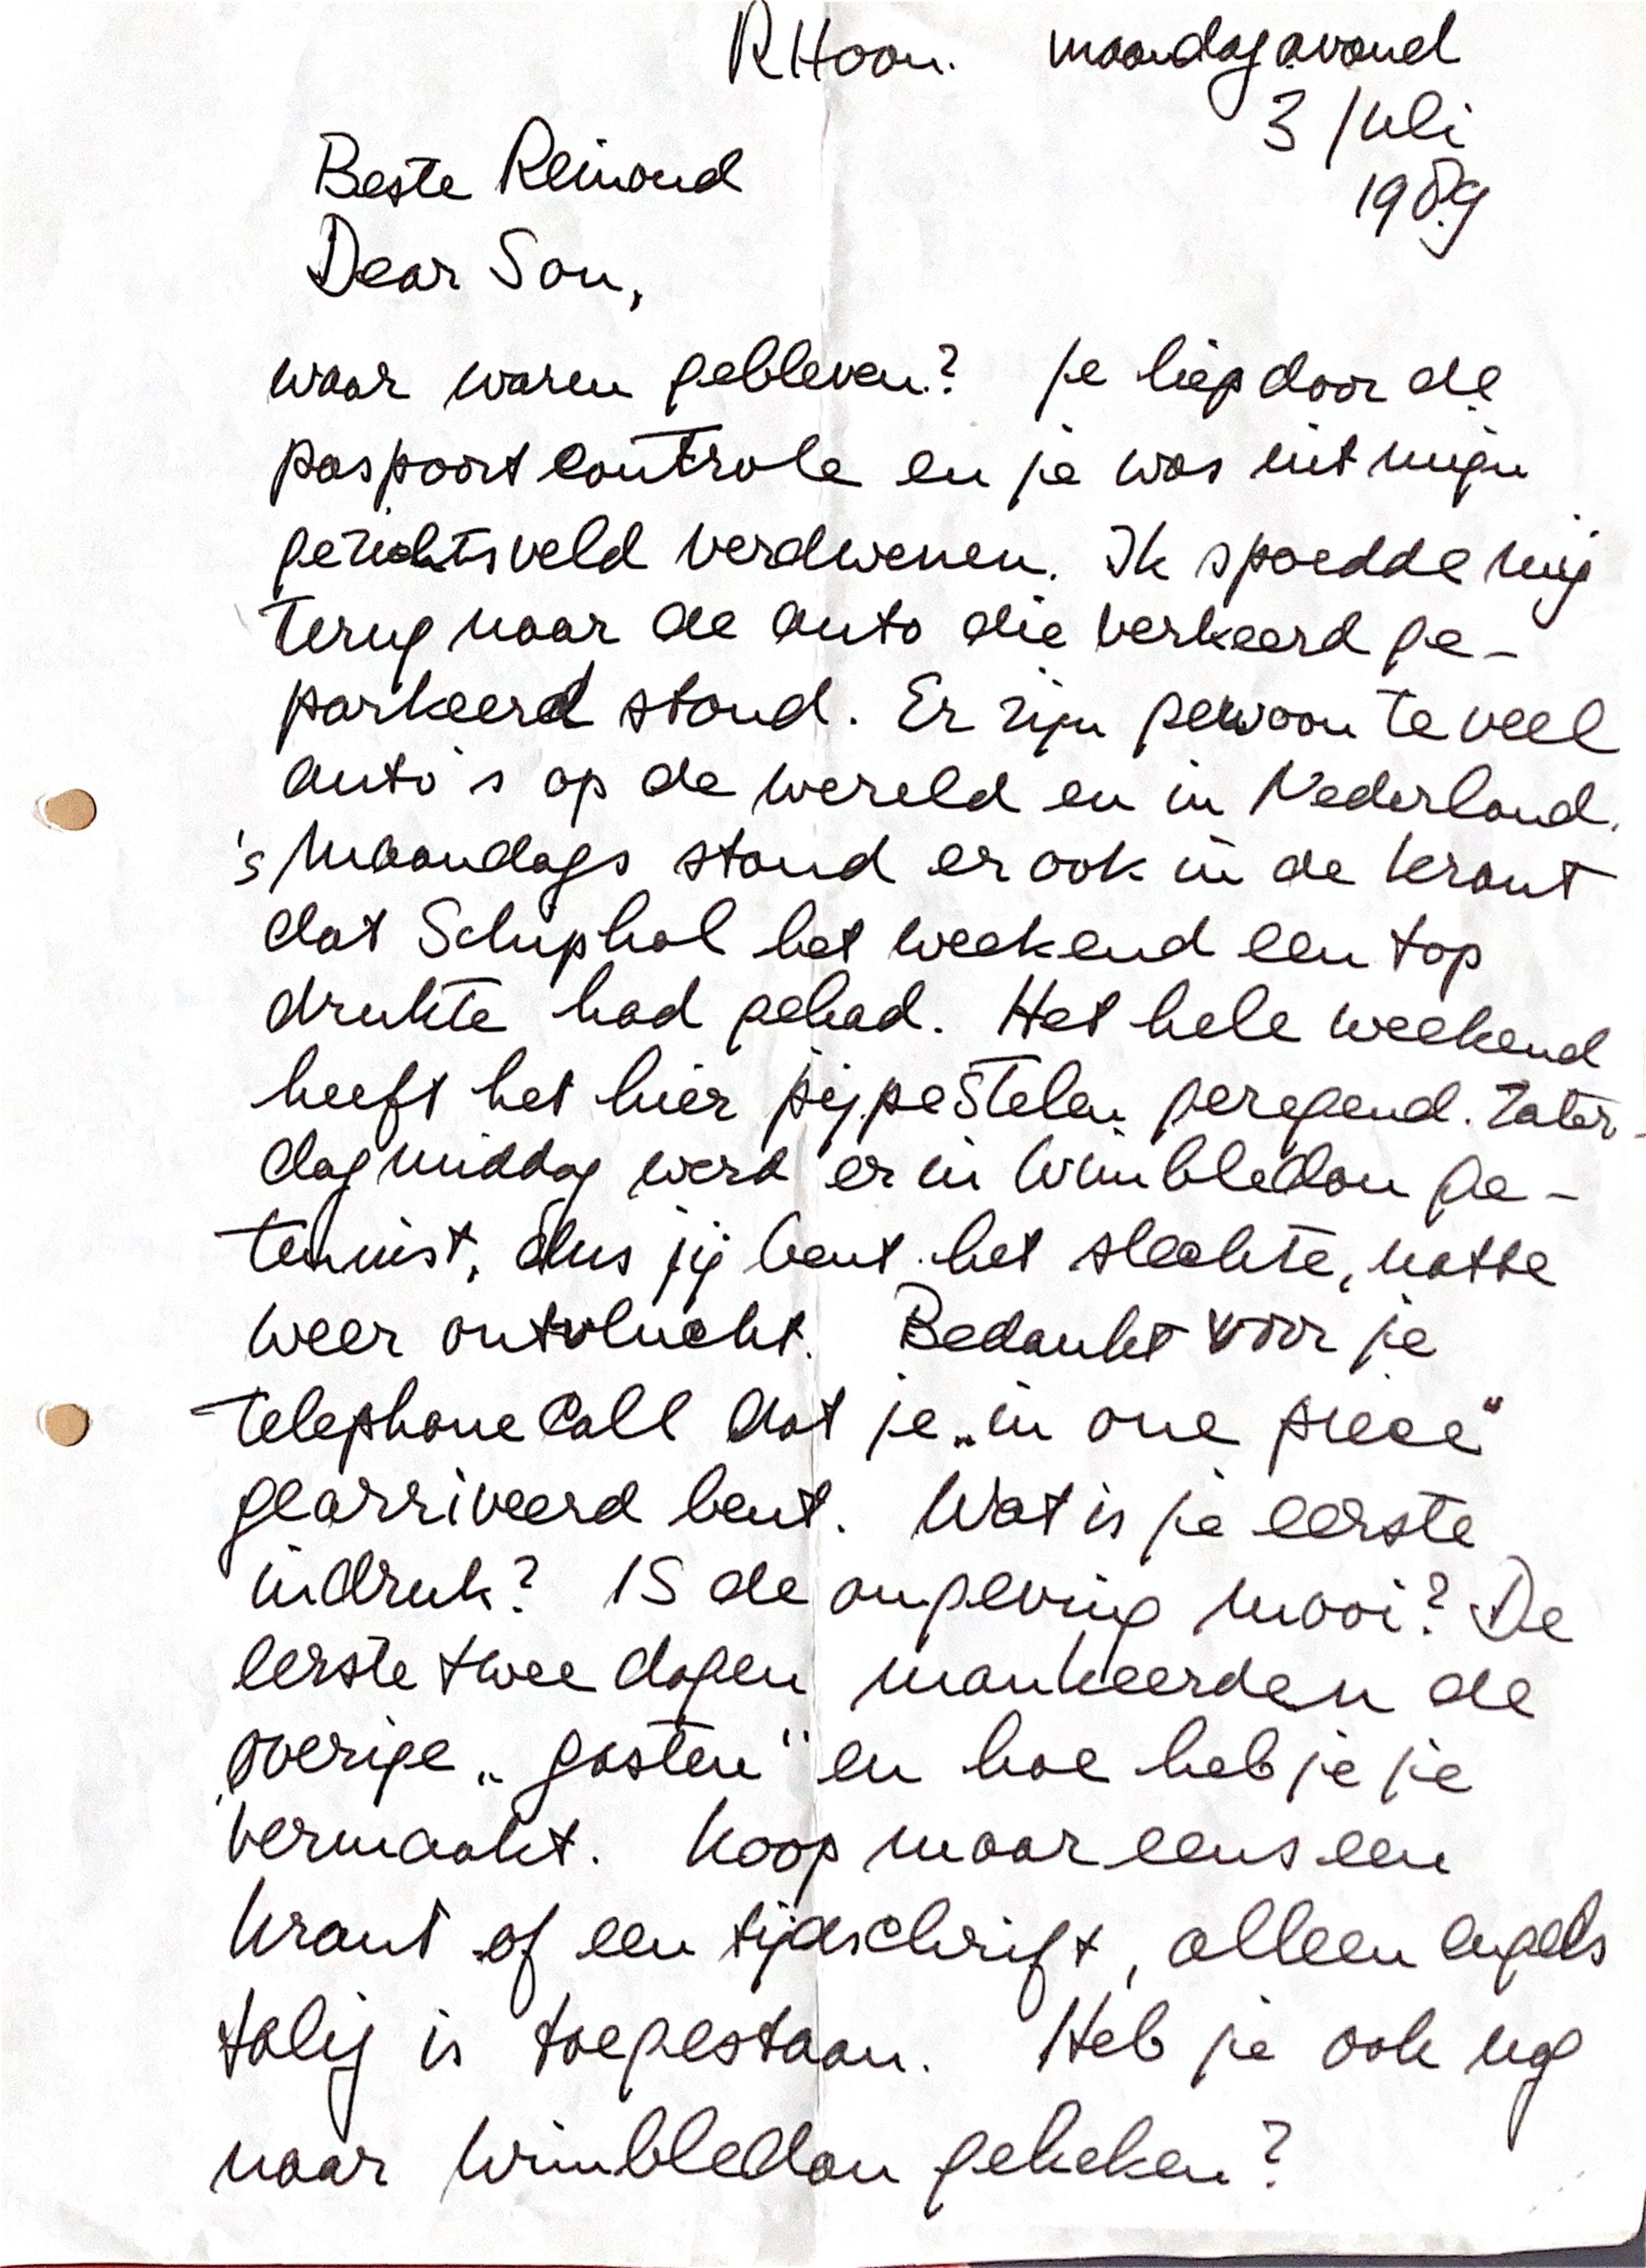 RHoon. maandagavond
3 juli
1989
Beste Reinoud
Dear Son,
waar waren gebleven? je liep door de
paspoort controle en je was uit mijn
gezichtsveld verdwenen. Ik spoedde mij
terug naar de auto die verkeerd ge-
parkeerd stond. Er zijn gewoon te veel
auto's op de wereld en in Nederland.
's maandags stond er ook in de krant
dat Schiphol het weekend een top
drukte had gehad. Het hele weekend
heeft het hier pijpestelen geregend. Zater-
dagmiddag werd er in Wimbledon ge-
tennist, dus jij bent het slechte, natte
weer ontvlucht. Bedankt voor je
telephone call dat je „in one piece"
gearriveerd bent. Wat is je eerste
indruk? IS de omgeving mooi? De
eerste twee dagen mankeerden de
overige „gasten" en hoe heb je je
vermaakt. Koop maar eens een
krant of een tijdschrift, alleen engels
talig is toegestaan. Heb je ook nog
naar Wimbledon gekeken?